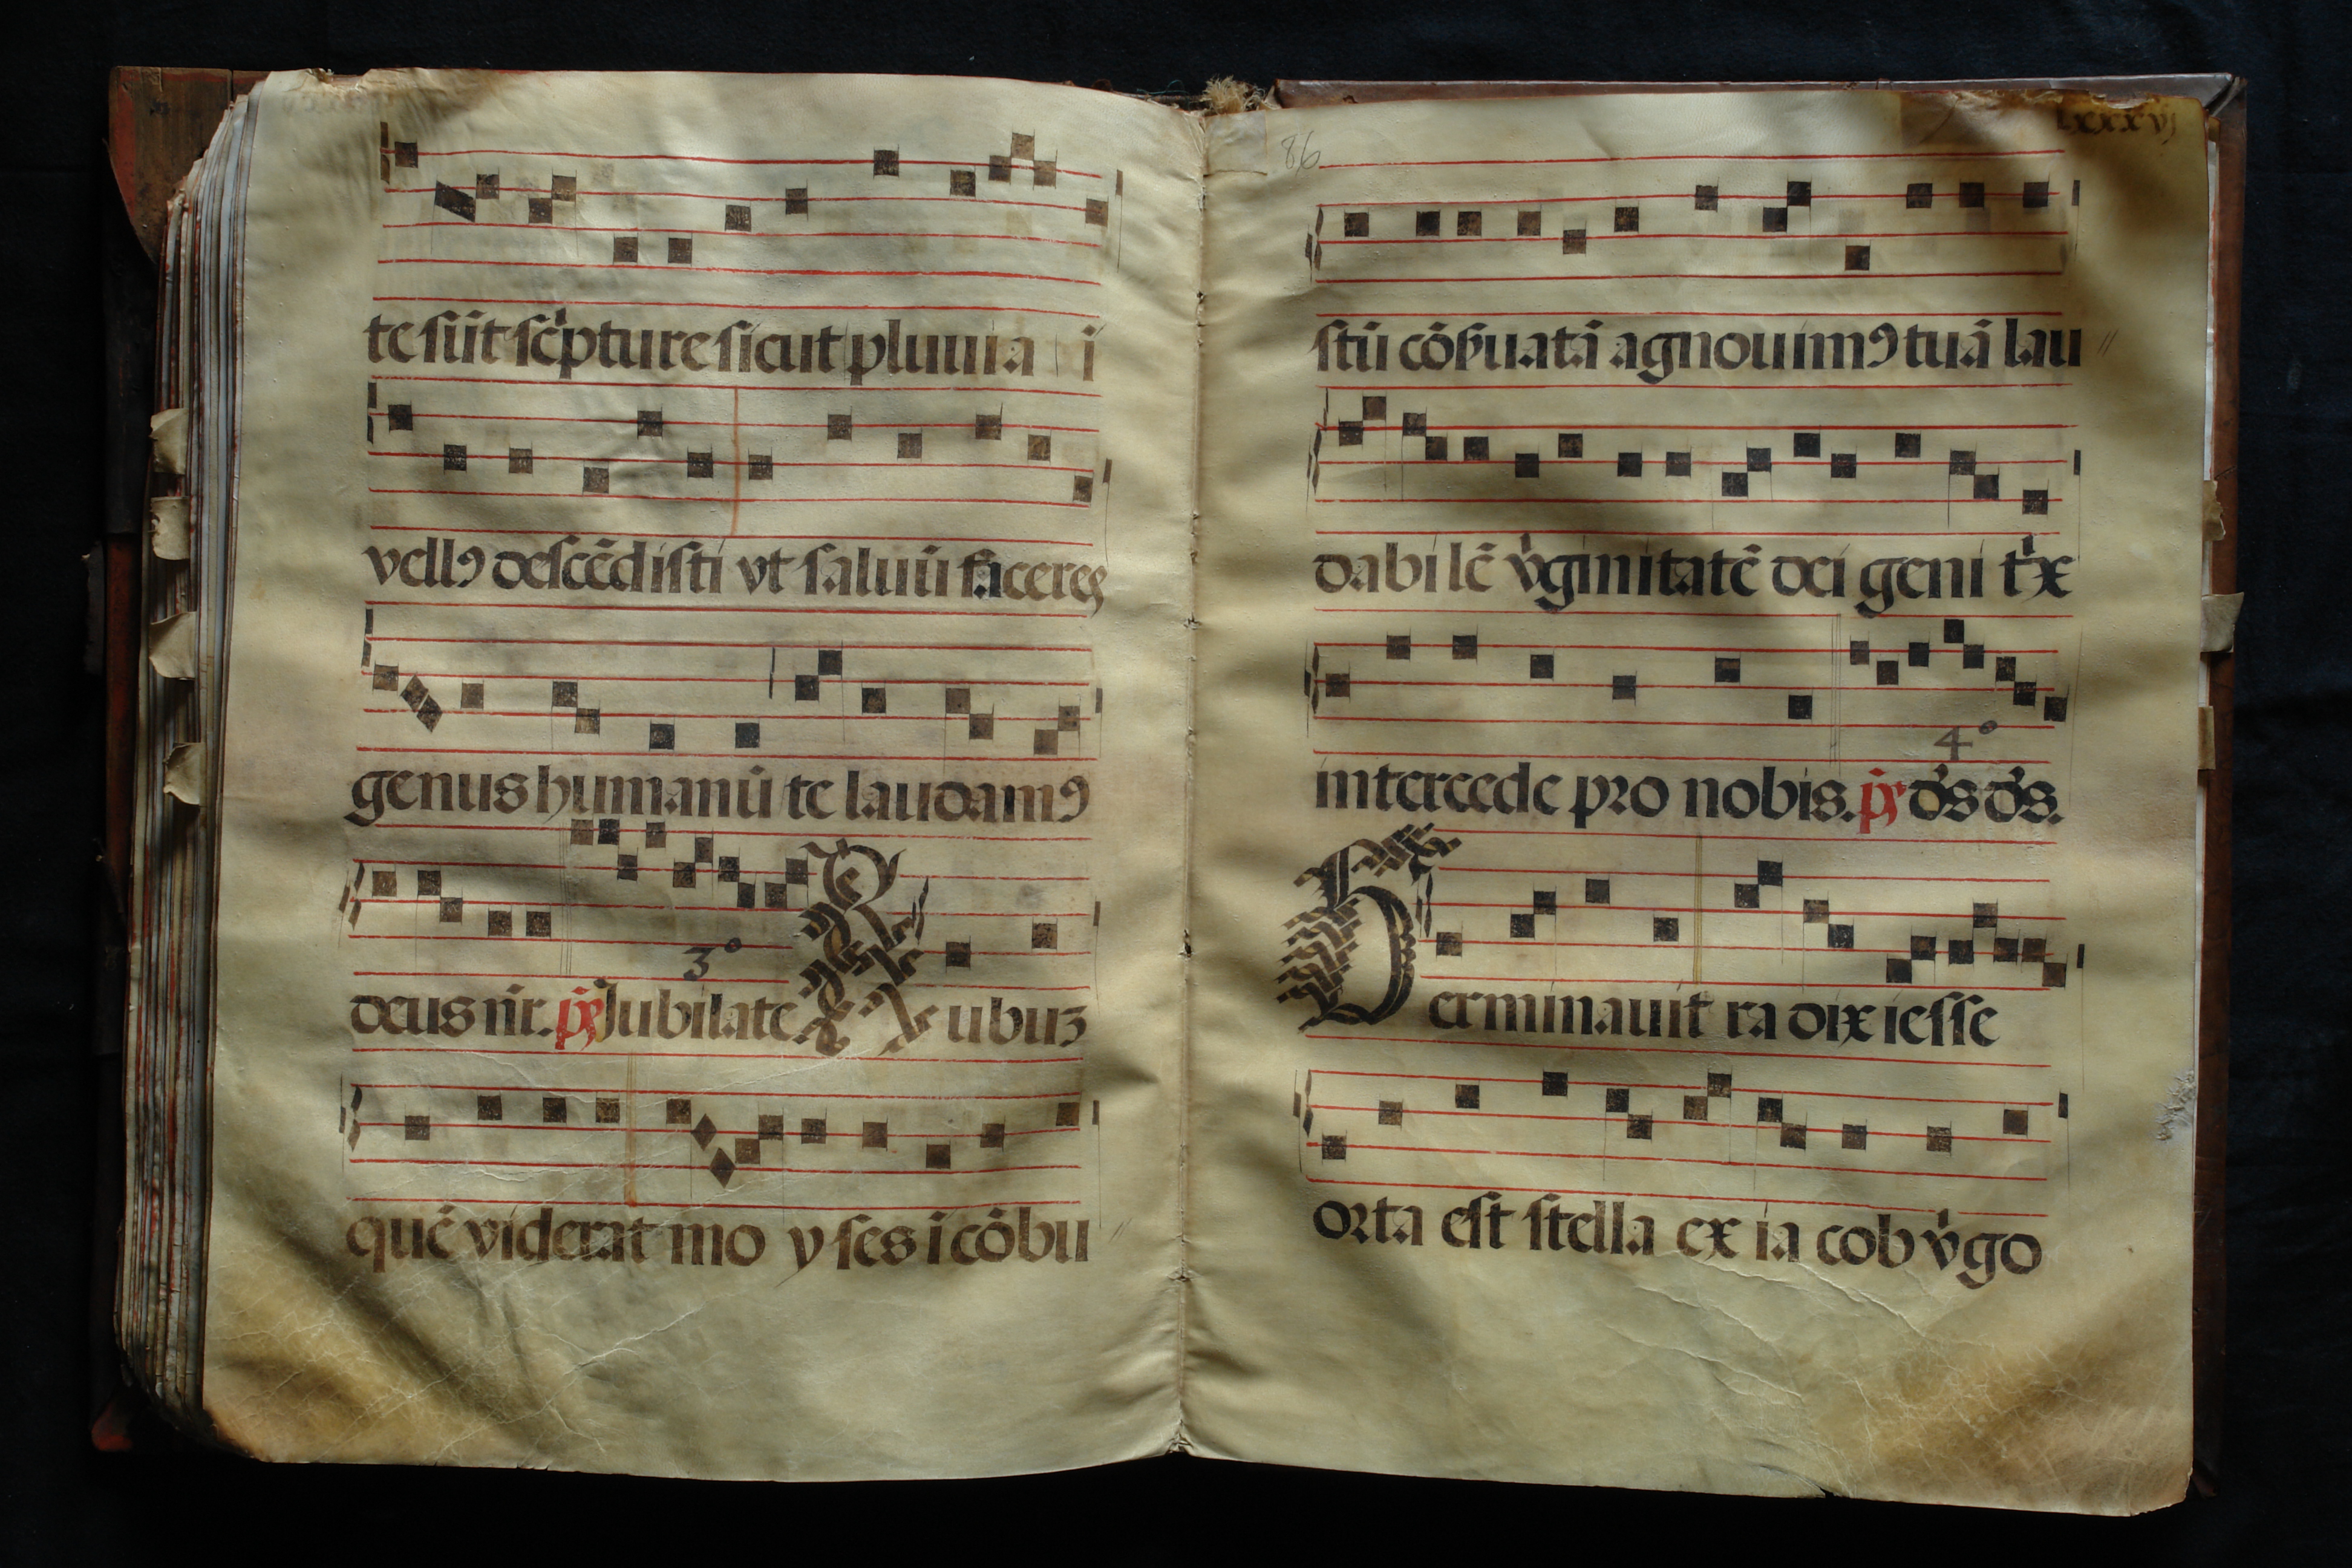 te sūt sc̓pture sicut pluuia i
vellꝰ descēdisti vt saluū faceres
genus humanū te laudamꝰ
3º
deus nr̄. p̄s Jubilate Rubuʒ
quē viderat mo yses icōbu
86 lxxxvj
stū cōẜuatā agnouimꝰ tuā lau
dabilē v̓ginitatē dei geni t̓x
4º
intercede pro nobis. p̄s d̓s d̓s.
Germinauit radix iesse
orta est stella ex iacob v̓go